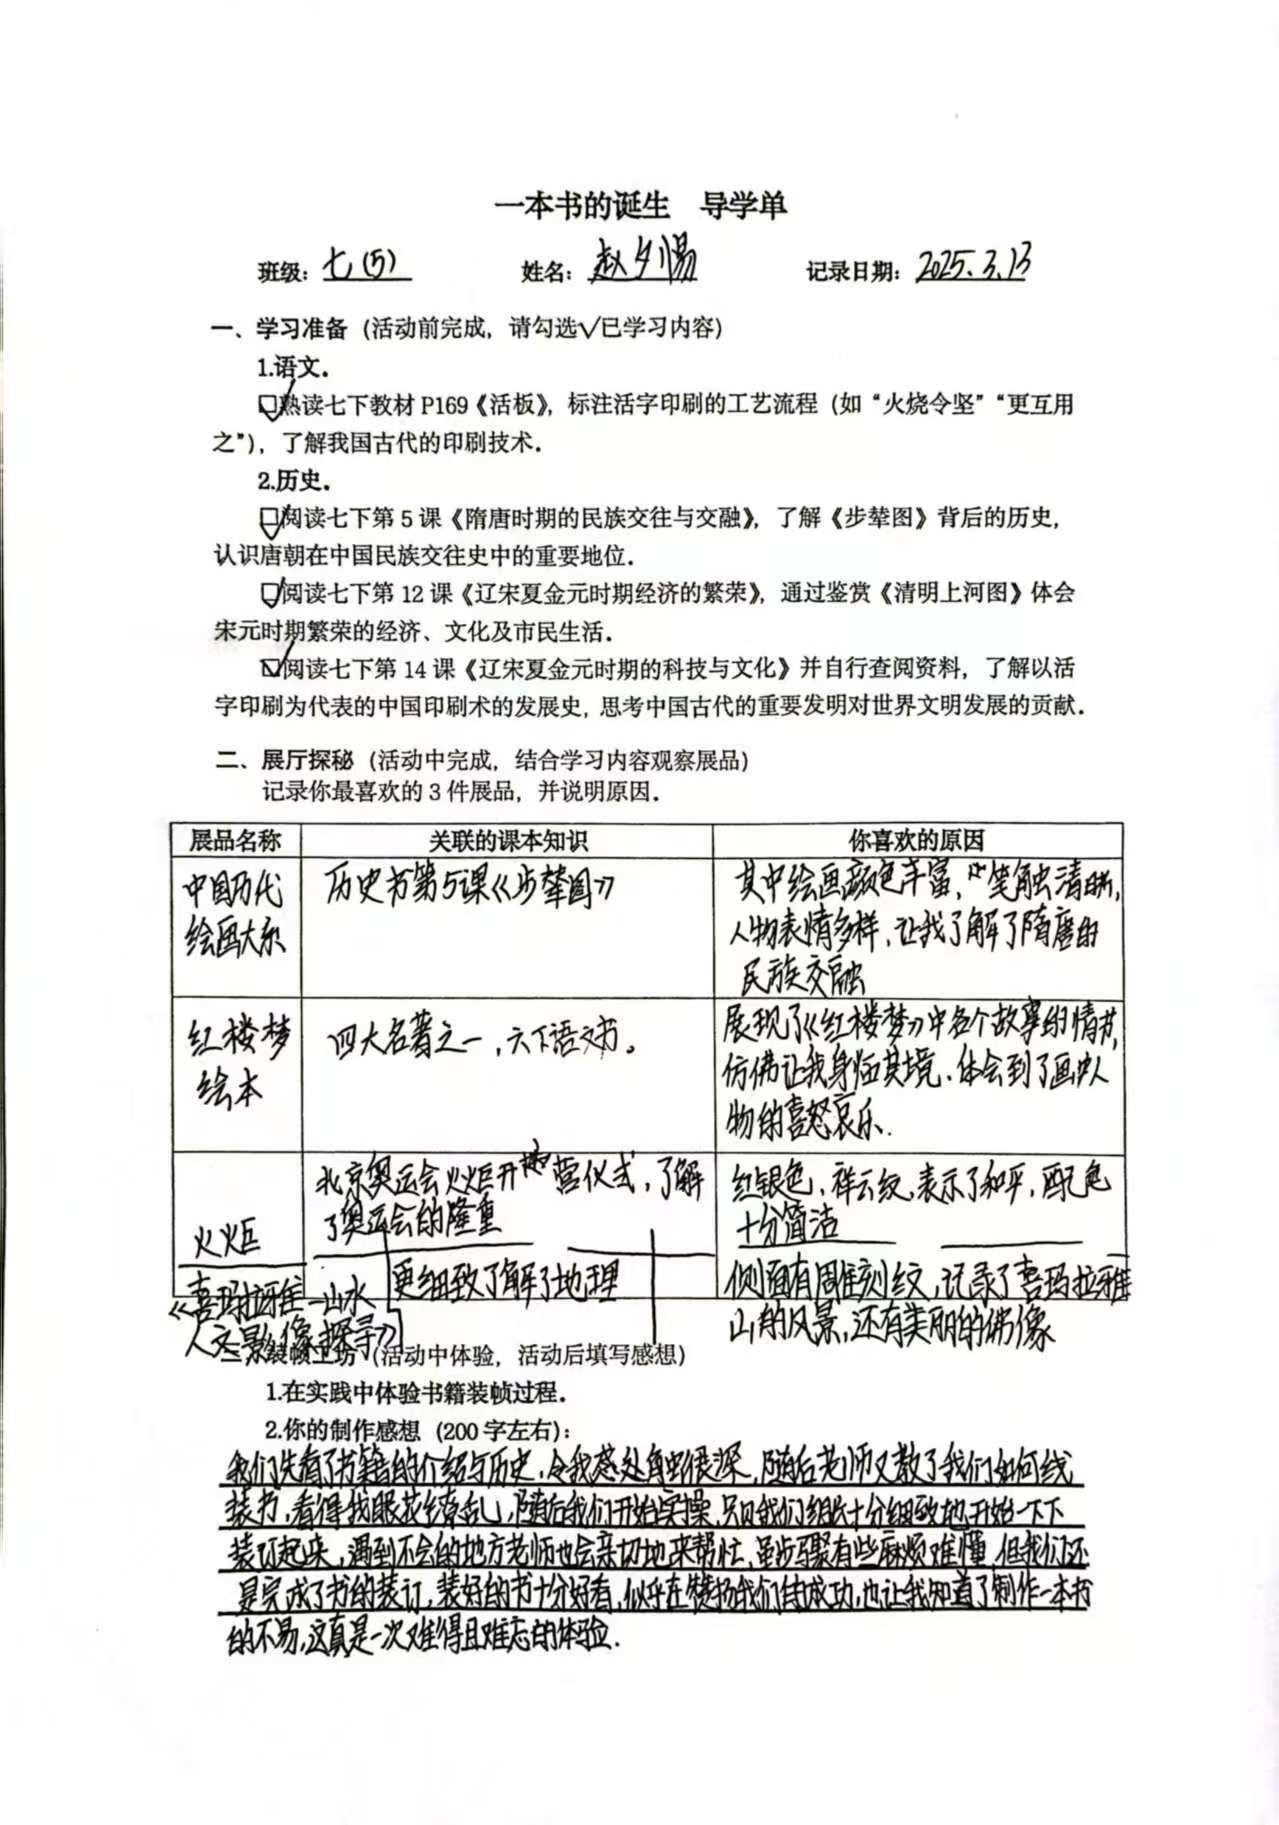 一本书的诞生 导学单
班级：七(5) 姓名：赵夕惕 记录日期：2025.3.13
一、学习准备（活动前完成，请勾选√已学习内容）
1.语文.
☑熟读七下教材 P169《活板》，标注活字印刷的工艺流程（如“火烧令坚”“更互用
之”），了解我国古代的印刷技术.
2.历史.
☑阅读七下第 5 课《隋唐时期的民族交往与交融》，了解《步辇图》背后的历史，
认识唐朝在中国民族交往史中的重要地位.
☑阅读七下第 12 课《辽宋夏金元时期经济的繁荣》，通过鉴赏《清明上河图》体会
宋元时期繁荣的经济、文化及市民生活.
☑阅读七下第 14 课《辽宋夏金元时期的科技与文化》并自行查阅资料，了解以活
字印刷为代表的中国印刷术的发展史，思考中国古代的重要发明对世界文明发展的贡献.
二、展厅探秘（活动中完成，结合学习内容观察展品）
记录你最喜欢的 3 件展品，并说明原因.
展品名称 关联的课本知识 你喜欢的原因
中国历代 历史书第5课《步辇图》 其中绘画颜色丰富，笔触清晰，
绘画大系 人物表情多样，让我了解了隋唐的
民族交融
红楼梦 四大名著之一，六下语文书。 展现了《红楼梦》中各个故事的情节，
绘本 仿佛让我身临其境，体会到了画中人
物的喜怒哀乐.
北京奥运会火炬开营仪式，了解 红银色，祥云纹，表示了和平，配色
火炬 了奥运会的隆重 十分简洁
《喜玛拉雅—山水 更细致了解了地理 侧面有周雕刻纹，记录了喜玛拉雅
人文影像探寻》 山的风景，还有美丽的佛像
三、装帧工坊（活动中体验，活动后填写感想）
1.在实践中体验书籍装帧过程.
2.你的制作感想（200 字左右）：
我们先看了书籍的介绍与历史，令我感处颇很深，随后老师又教了我们如何线
装书，看得我眼花缭乱，随后我们开始实操，只见我们组长十分细致地开始一下下
装订起来，遇到不会的地方老师也会亲切地来帮忙，虽步骤有些麻烦难懂，但我们还
是完成了书的装订，装好的书十分好看，似乎在赞扬我们的成功，也让我知道了制作一本书
的不易，这真是一次难得且难忘的体验.